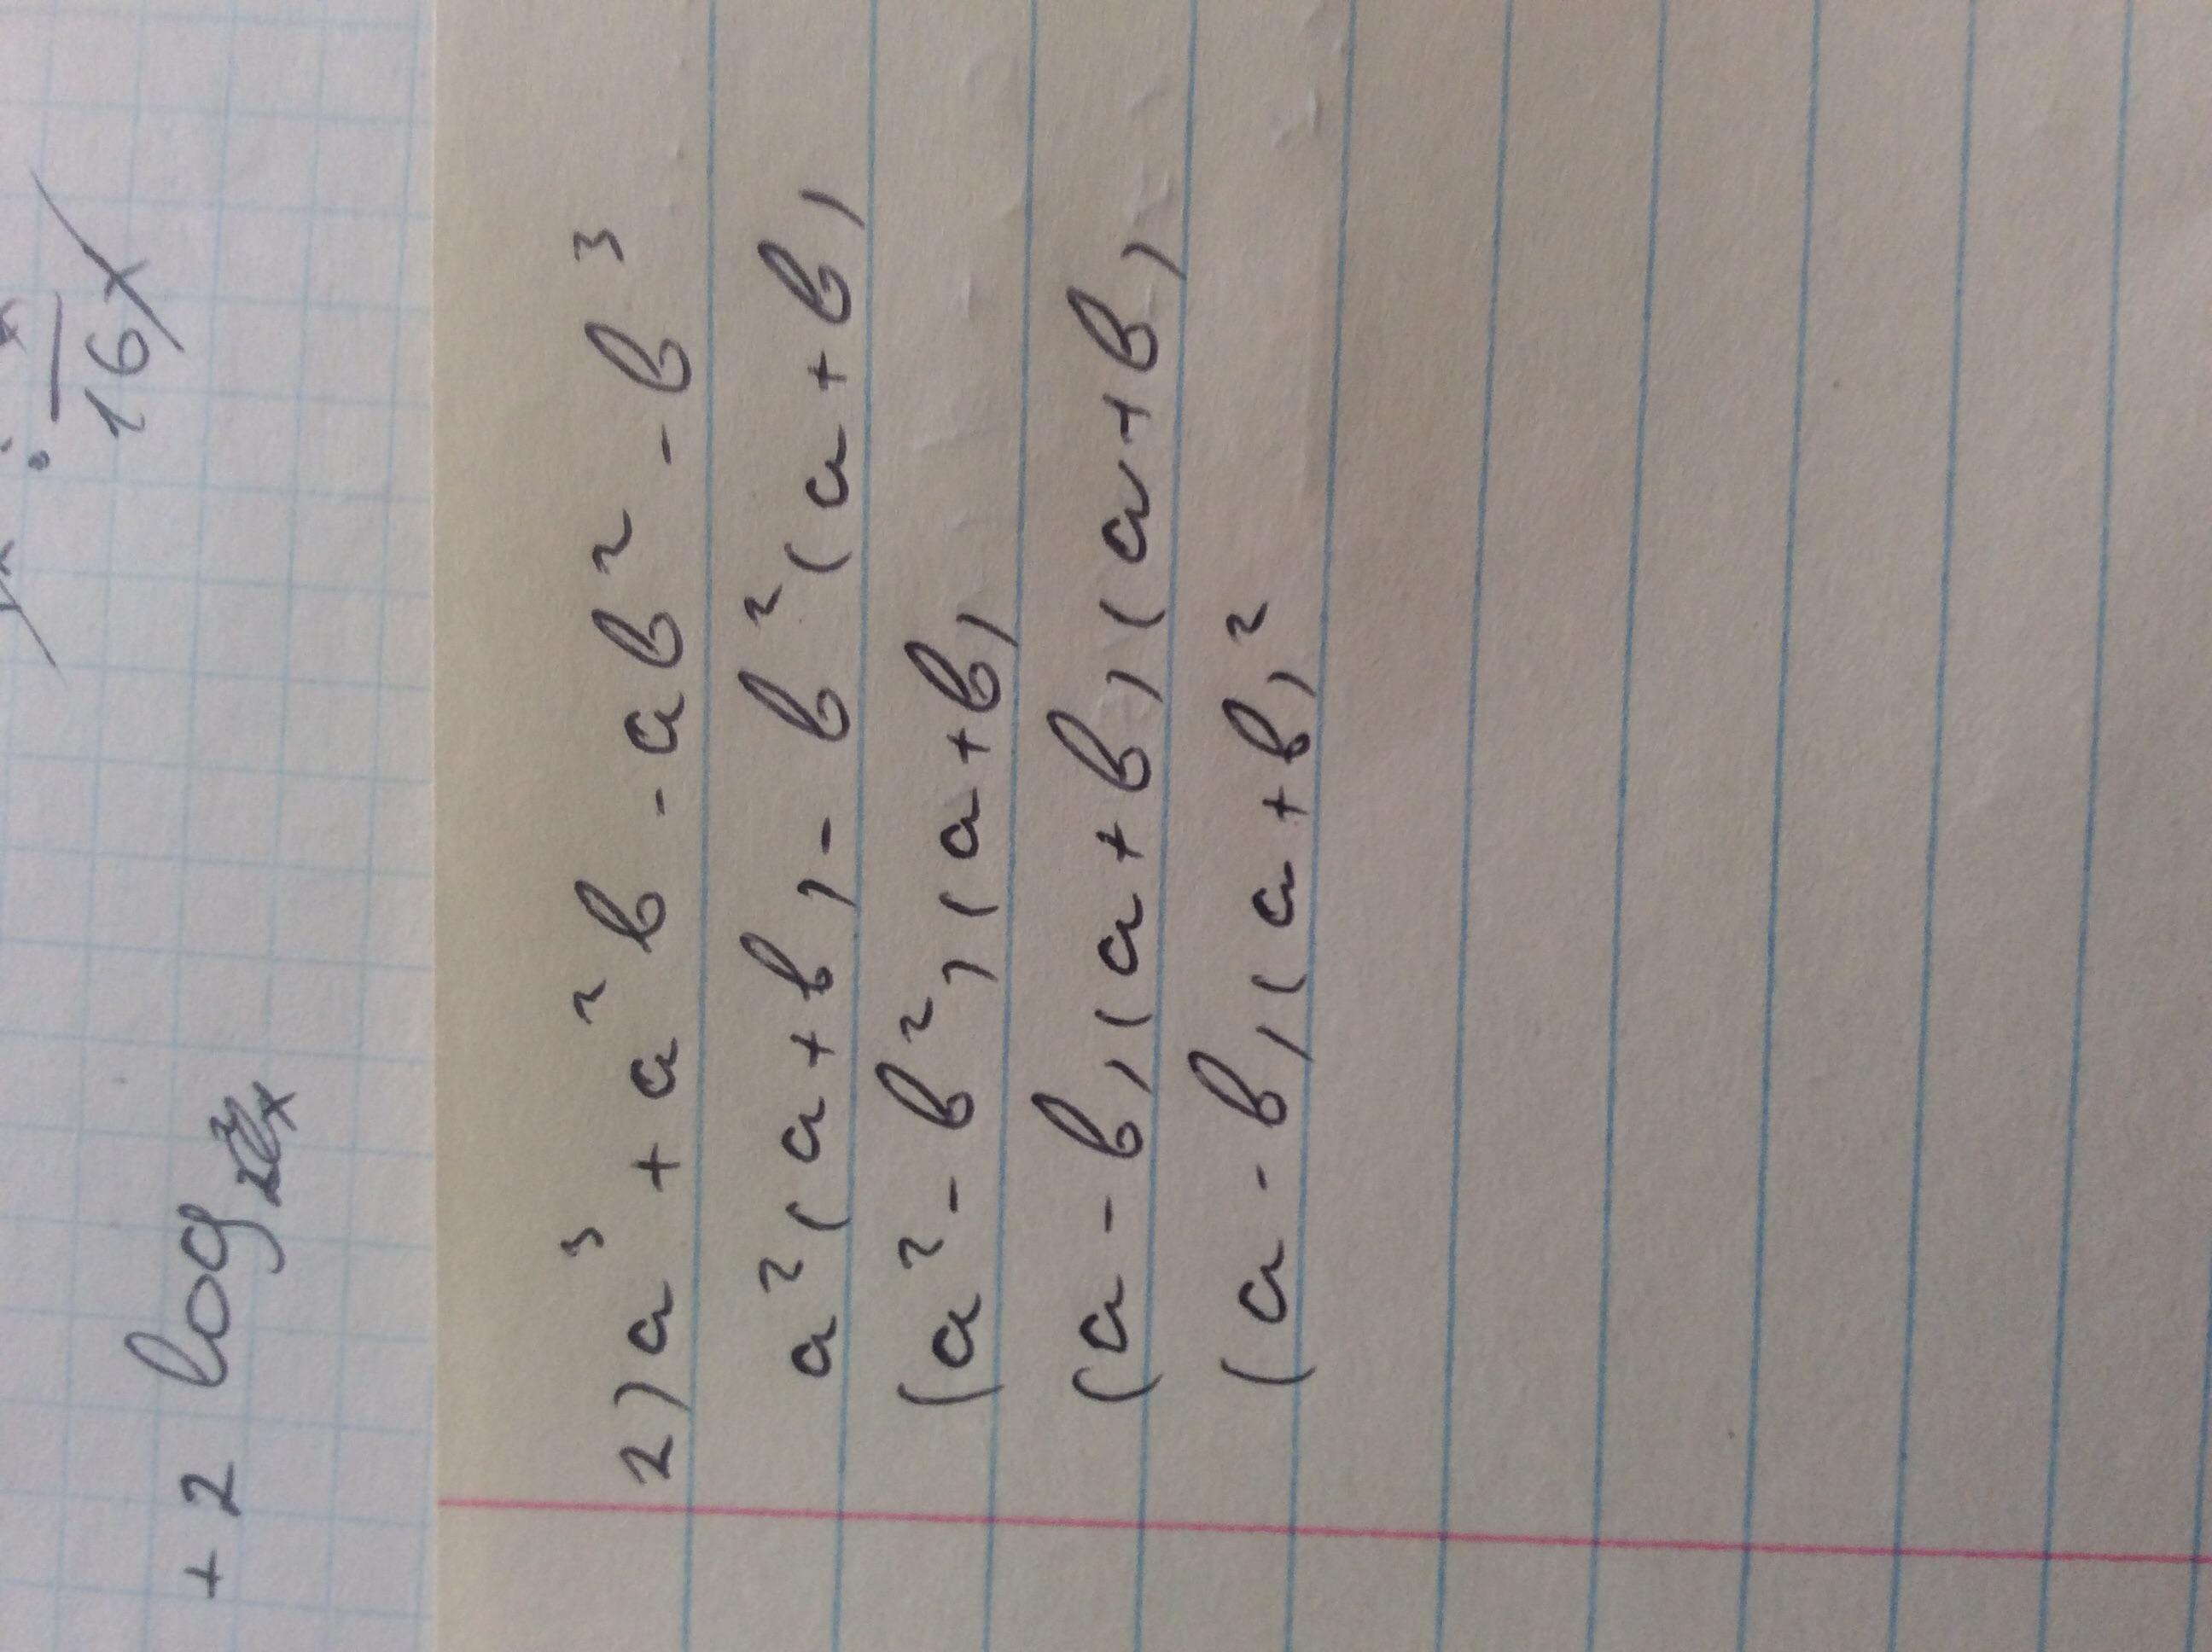 16x
+ 2 log
2) a³ + a²b - ab² - b³
a²(a+b) - b²(a+b)
(a² - b²)(a+b)
(a - b)(a+b)(a+b)
(a - b)(a+b)²